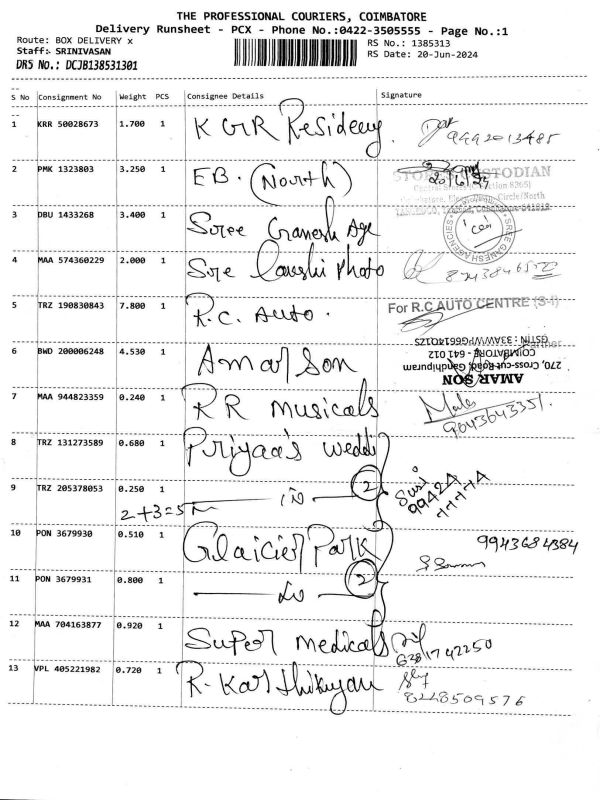 THE PROFESSIONAL COURIERS, COIMBATORE
Delivery Runsheet - PCX - Phone No.:0422-3505555 - Page No.:1
Route: BOX DELIVERY x
RS No.: 1385313
Staff: SRINIVASAN
RS Date: 20-Jun-2024
DRS No.: DCJB138531301
S No Consignment No Weight PCS Consignee Details Signature
1 KRR 50028673 1.700 1 KGR Residency 9992013485
2 PMK 1323803 3.250 1 EB. (North)
STORES CUSTODIAN
3 DBU 1433268 3.400 1 Sree Ganesh Age
SREE GANESH AGENCIES
4 MAA 574360229 2.000 1 Sre Photo
5 TRZ 190830843 7.800 1 R.C. Auto.
For R.C AUTO CENTRE
6 BWD 200006248 4.530 1 Amar Son
GSTIN: 33AWVPG6614Q1ZS
COIMBATORE - 641 012
270, Cross-cut-Road, Gandhipuram
AMAR SON
7 MAA 944823359 0.240 1 RR Musicals
8 TRZ 131273589 0.680 1 Priyaa's weddi
9 TRZ 205378053 0.250 1 2 Susi
2+3=5
10 PON 3679930 0.510 1 Glaicier Park 9943684384
11 PON 3679931 0.800 1 2
12 MAA 704163877 0.920 1 Super Medicals 6381742250
13 VPL 405221982 0.720 1 R. Karthikeyan 8248509576